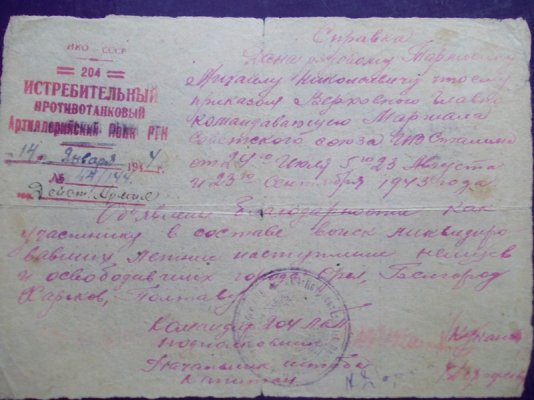 НКО СССР
204
ИСТРЕБИТЕЛЬНЫЙ
ПРОТИВОТАНКОВЫЙ
Артиллерийский Полк РГК
14 Января 1944
№ 44/144
Действ. Армия
Справка
Дана
Михаилу Николаевичу в том что ему
приказом Верховного Главно
командующего Маршала
Советского союза Сталина
от 24го Июля 5го 23 Августа
и 23го Сентября 1943 года
Объявлены Благодарности как
участнику в составе войск ликвидиро
вавших летнее наступление немцев
и освободивших города Орел, Белгород
Харьков, Полтаву
Командир 204
подполковник
Начальник штаба
капитан